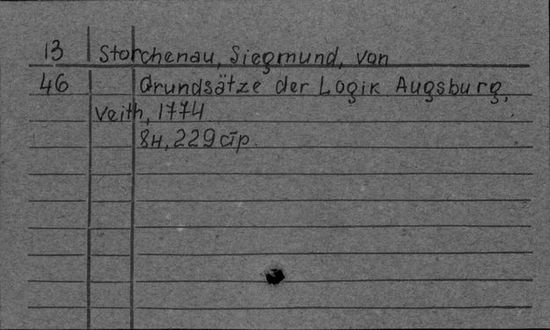 13 Storchenau, Siegmund, von
46 Grundsätze der Logik Augsburg,
Veith, 1774
8н, 229 стр.